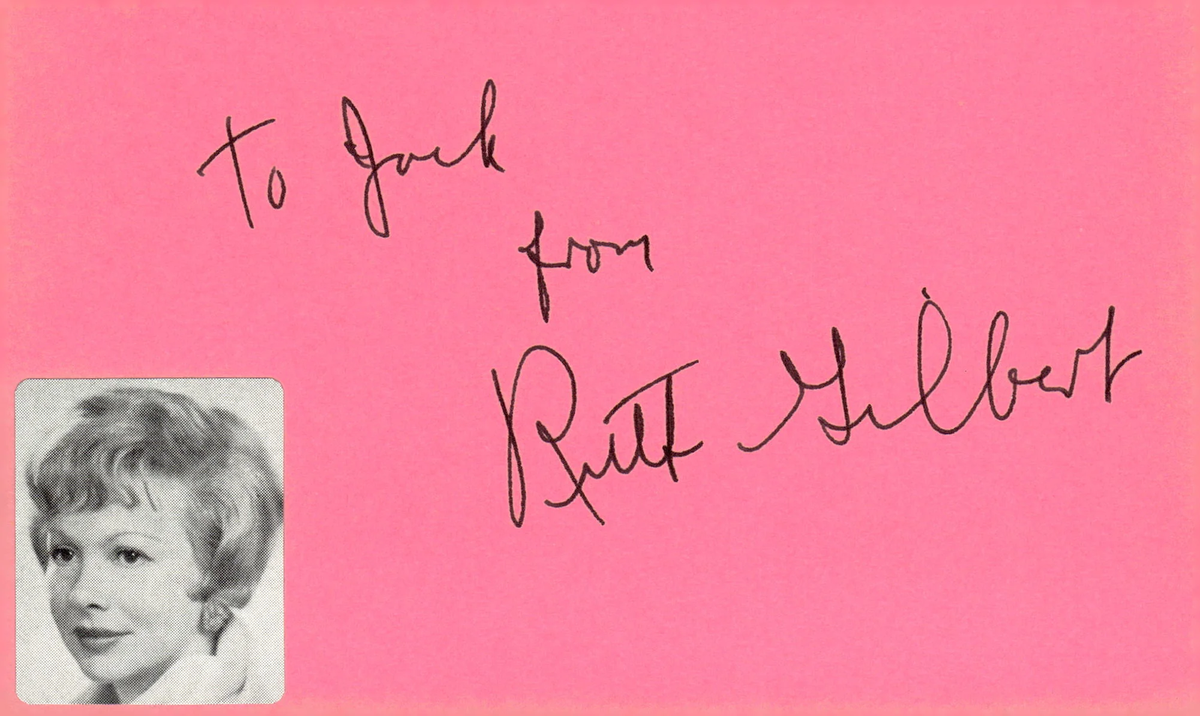 To Jack
from
Ruth Gilbert